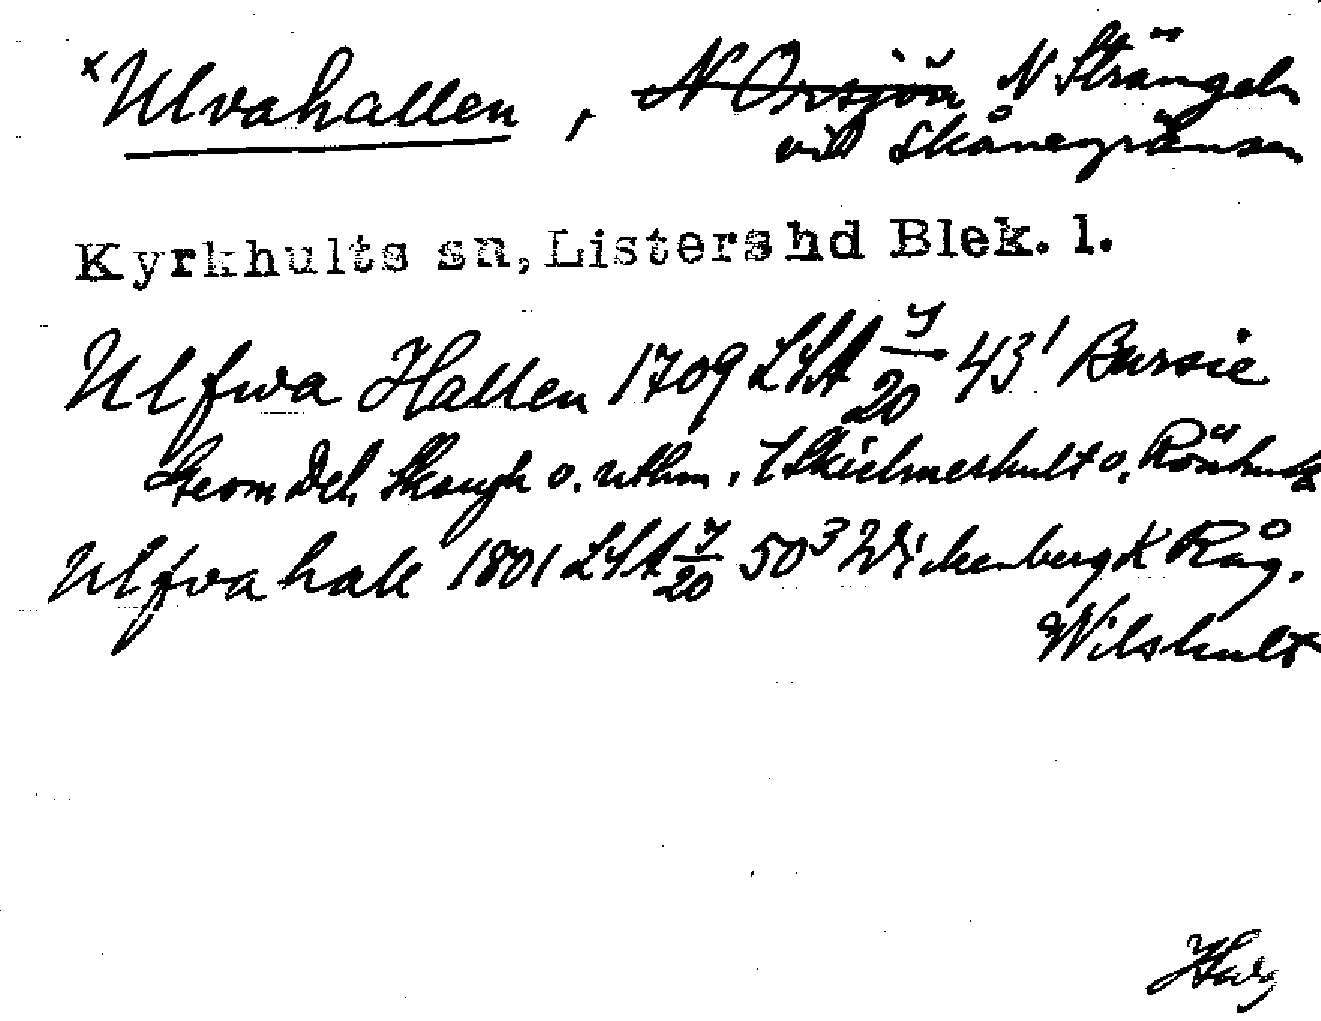 x Ulvahallen, N Orsjön N Strängeln
vid Skånegränsen
Kyrkhults sn, Listers hd Blek. l.
Ulfwa Hallen 1709 LSA 43¹ Bursie
Geom Del. Skough o. uthm. Skielmershult o.
Ulfva hall 1801 LSA 50³ Wickenberg K Råg.
Wilshult